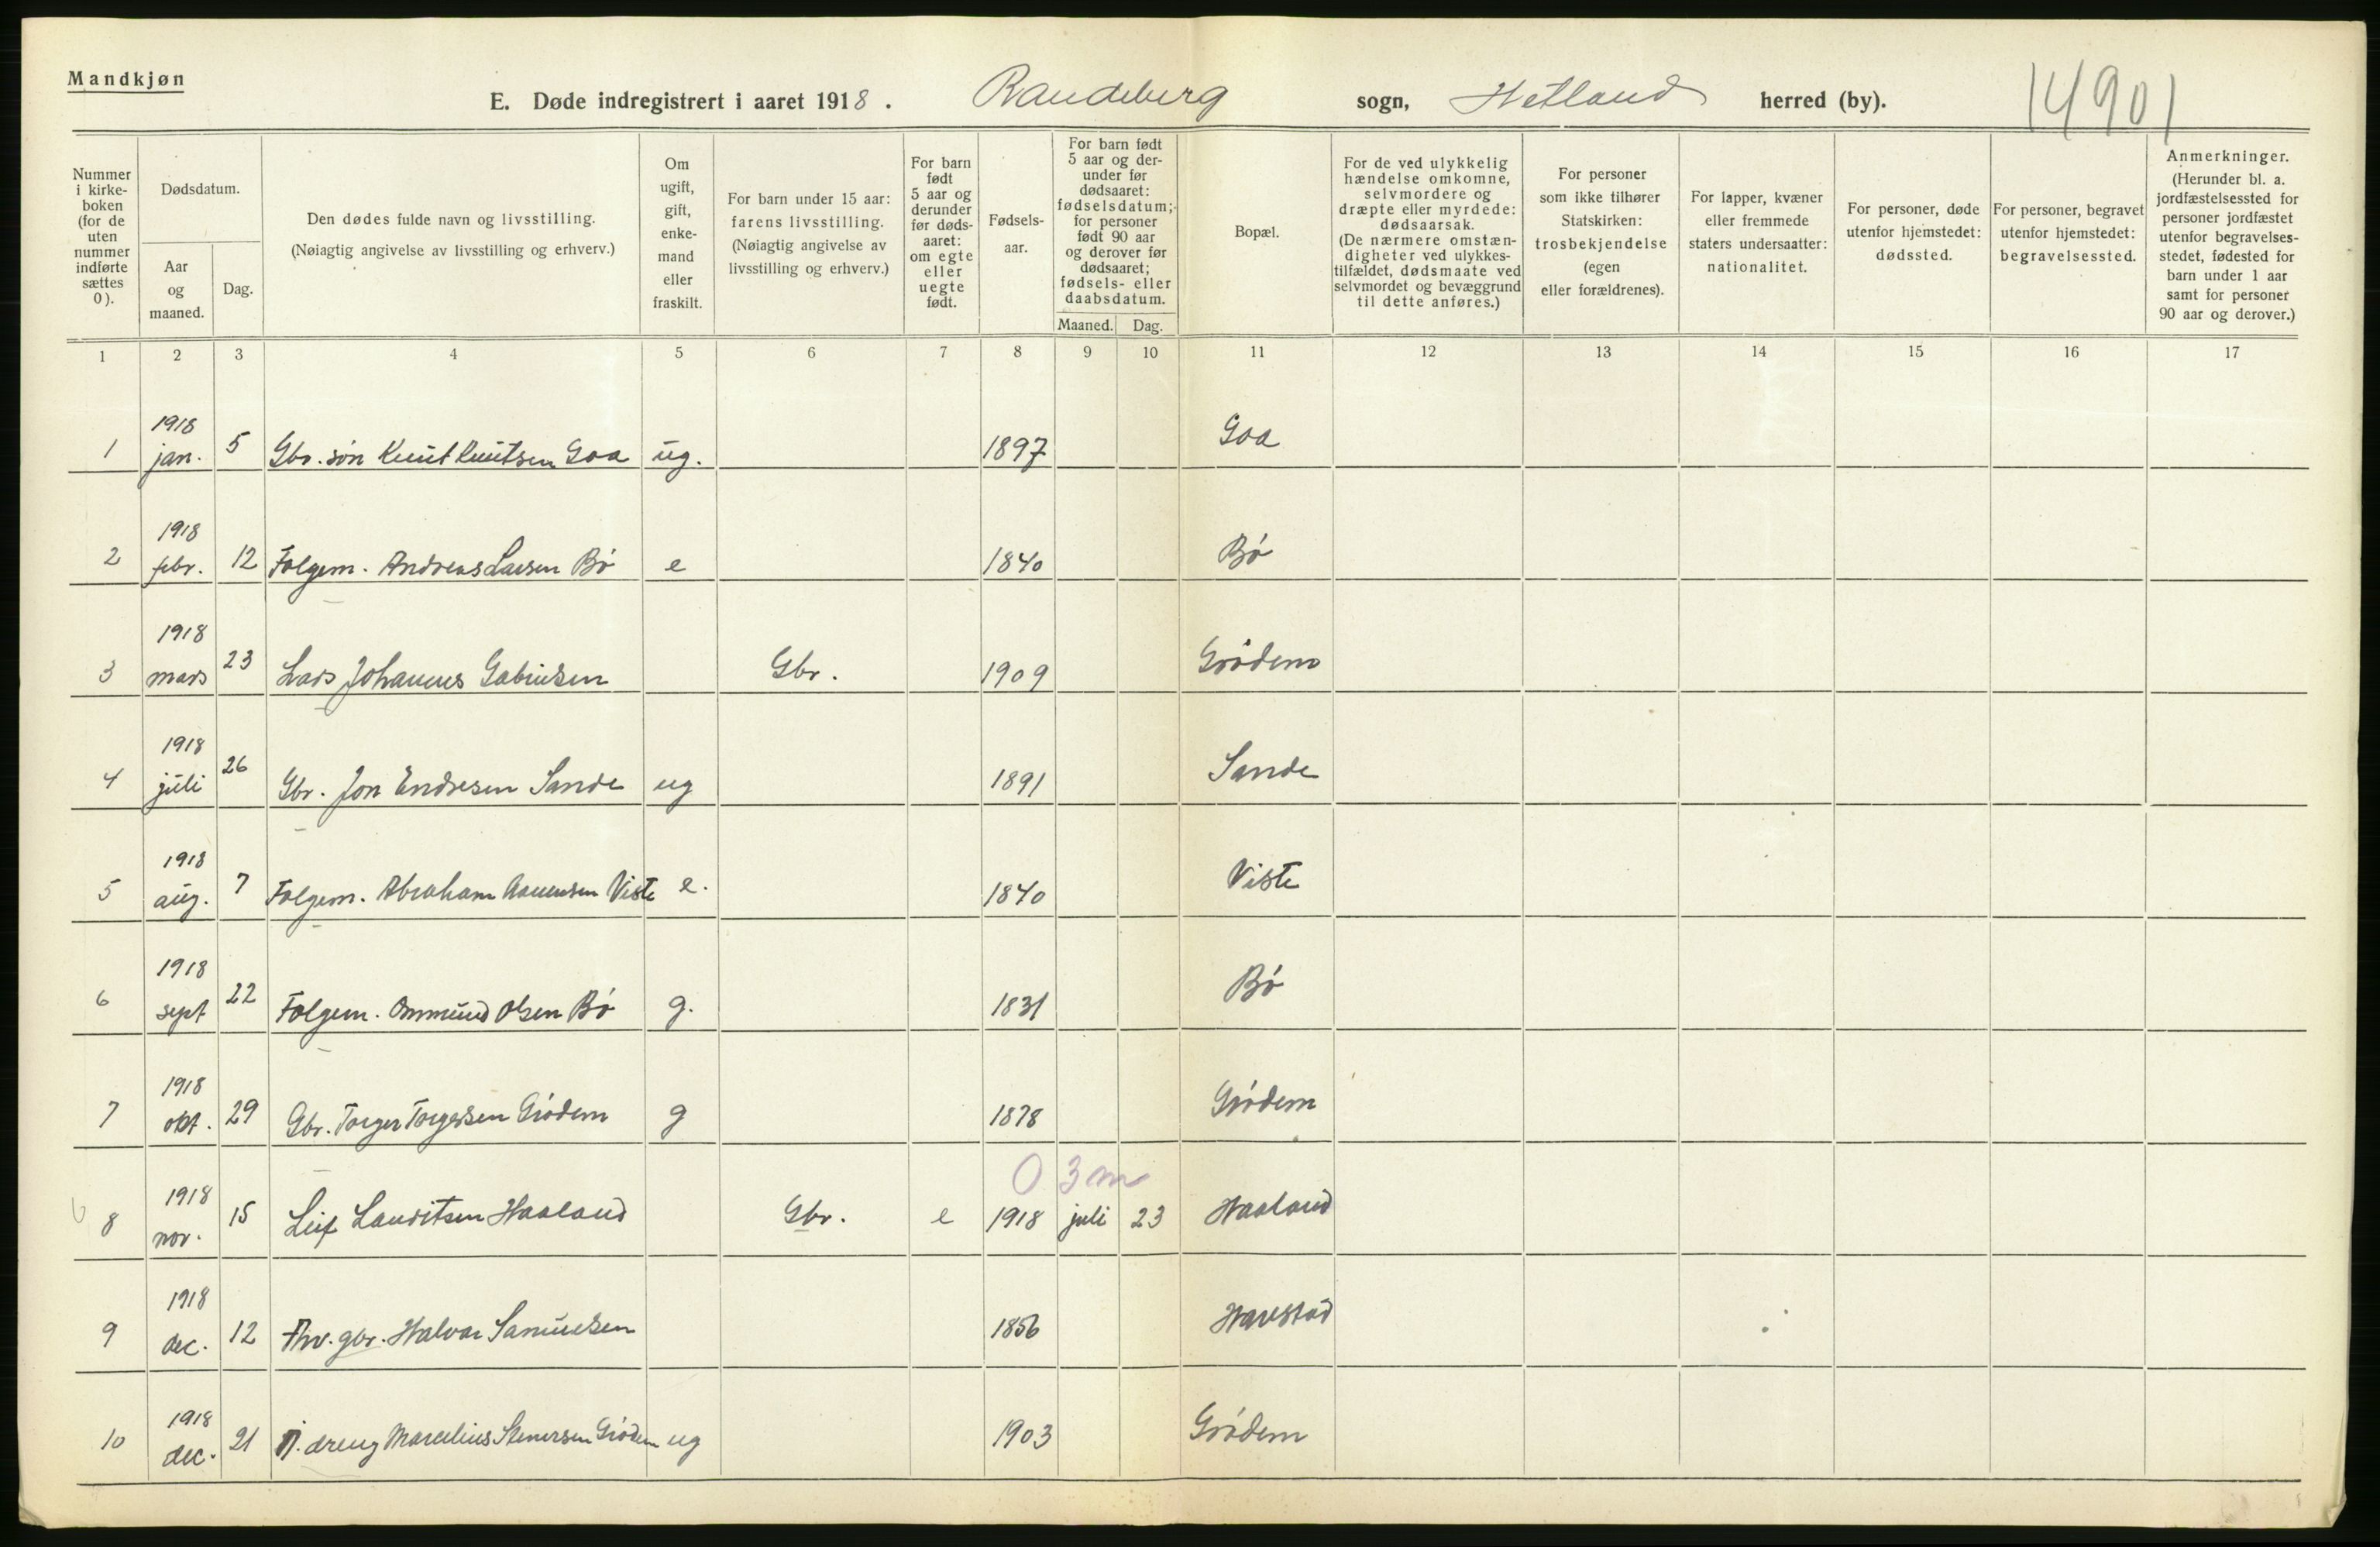 Mandkjøn
E. Døde indregistrert i aaret 1918. Randeberg sogn, Hetland herred (by). 14901
Nummer i kirkeboken (for de uten nummer indførte sættes 0).
Dødsdatum.
Aar og maaned.
Dag.
Den dødes fulde navn og livsstilling.
(Nøiagtig angivelse av livsstilling og erhverv.)
Om ugift, gift, enkemand eller fraskilt.
For barn under 15 aar: farens livsstilling.
(Nøiagtig angivelse av livsstilling og erhverv.)
For barn født 5 aar og derunder før dødsaaret: om egte eller uegte født.
Fødselsaar.
For barn født 5 aar og derunder før dødsaaret: fødselsdatum; for personer født 90 aar og derover før dødsaaret; fødsels- eller daabsdatum.
Maaned. Dag.
Bopæl.
For de ved ulykkelig hændelse omkomne, selvmordere og dræpte eller myrdede: dødsaarsak.
(De nærmere omstændigheter ved ulykkestilfældet, dødsmaate ved selvmordet og bevæggrund til dette anføres.)
For personer som ikke tilhører Statskirken: trosbekjendelse (egen eller forældrenes).
For lapper, kvæner eller fremmede staters undersaatter: nationalitet.
For personer, døde utenfor hjemstedet: dødssted.
For personer, begravet utenfor hjemstedet: begravelsessted.
Anmerkninger.
(Herunder bl. a. jordfæstelsessted for personer jordfæstet utenfor begravelsesstedet, fødested for barn under 1 aar samt for personer 90 aar og derover.)
1 2 3 4 5 6 7 8 9 10 11 12 13 14 15 16 17
1 1918 jan. 5 Gbr. søn Knut Knutsen Goa ug. 1897 Goa
2 1918 febr. 12 Folgem. Andreas Larsen Bø e 1840 Bø
3 1918 mars 23 Lars Johannes Gabrielsen Gbr. 1909 Grødem
4 1918 juli 26 Gbr. Jon Endresen Sande ug 1891 Sande
5 1918 aug. 7 Folgem. Abraham Viste e. 1840 Viste
6 1918 sept 22 Folgem. Ommund Olsen Bø g. 1831 Bø
7 1918 okt. 29 Gbr. Torger Torgersen Grødem g 1878 Grødem
0 3 m
8 1918 nov. 15 Leif Lauritsen Haaland Gbr. e 1918 juli 23 Haaland
9 1918 dec. 12 gbr. Halvor Samuelsen 1856 Harestad
10 1918 dec. 21 dreng Marcelius Stenersen Grødem ug 1903 Grødem